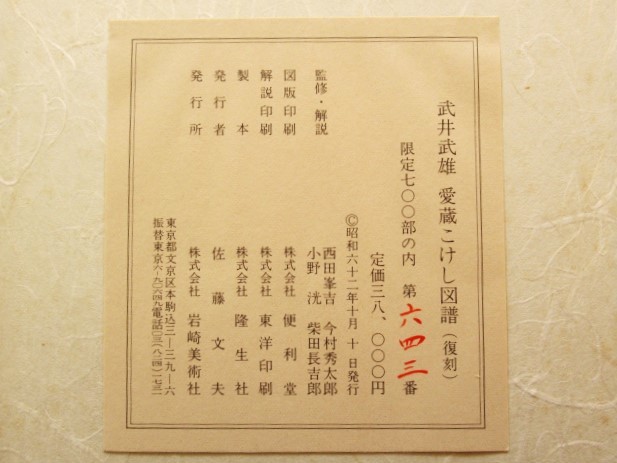 武井武雄 愛蔵こけし図譜（復刻）
限定七〇〇部の内 第六四三番
定価三八、〇〇〇円
©昭和六十二年十月 十 日発行
監修・解説 西田峯吉 今村秀太郎
小野 洸 柴田長吉郎
図版印刷 株式会社 便利堂
解説印刷 株式会社 東洋印刷
製本 株式会社 隆生社
発行者 佐藤文夫
発行所 株式会社 岩崎美術社
東京都文京区本駒込三―三九―六
振替東京六―九六四九電話〇三（八二四）一七三一